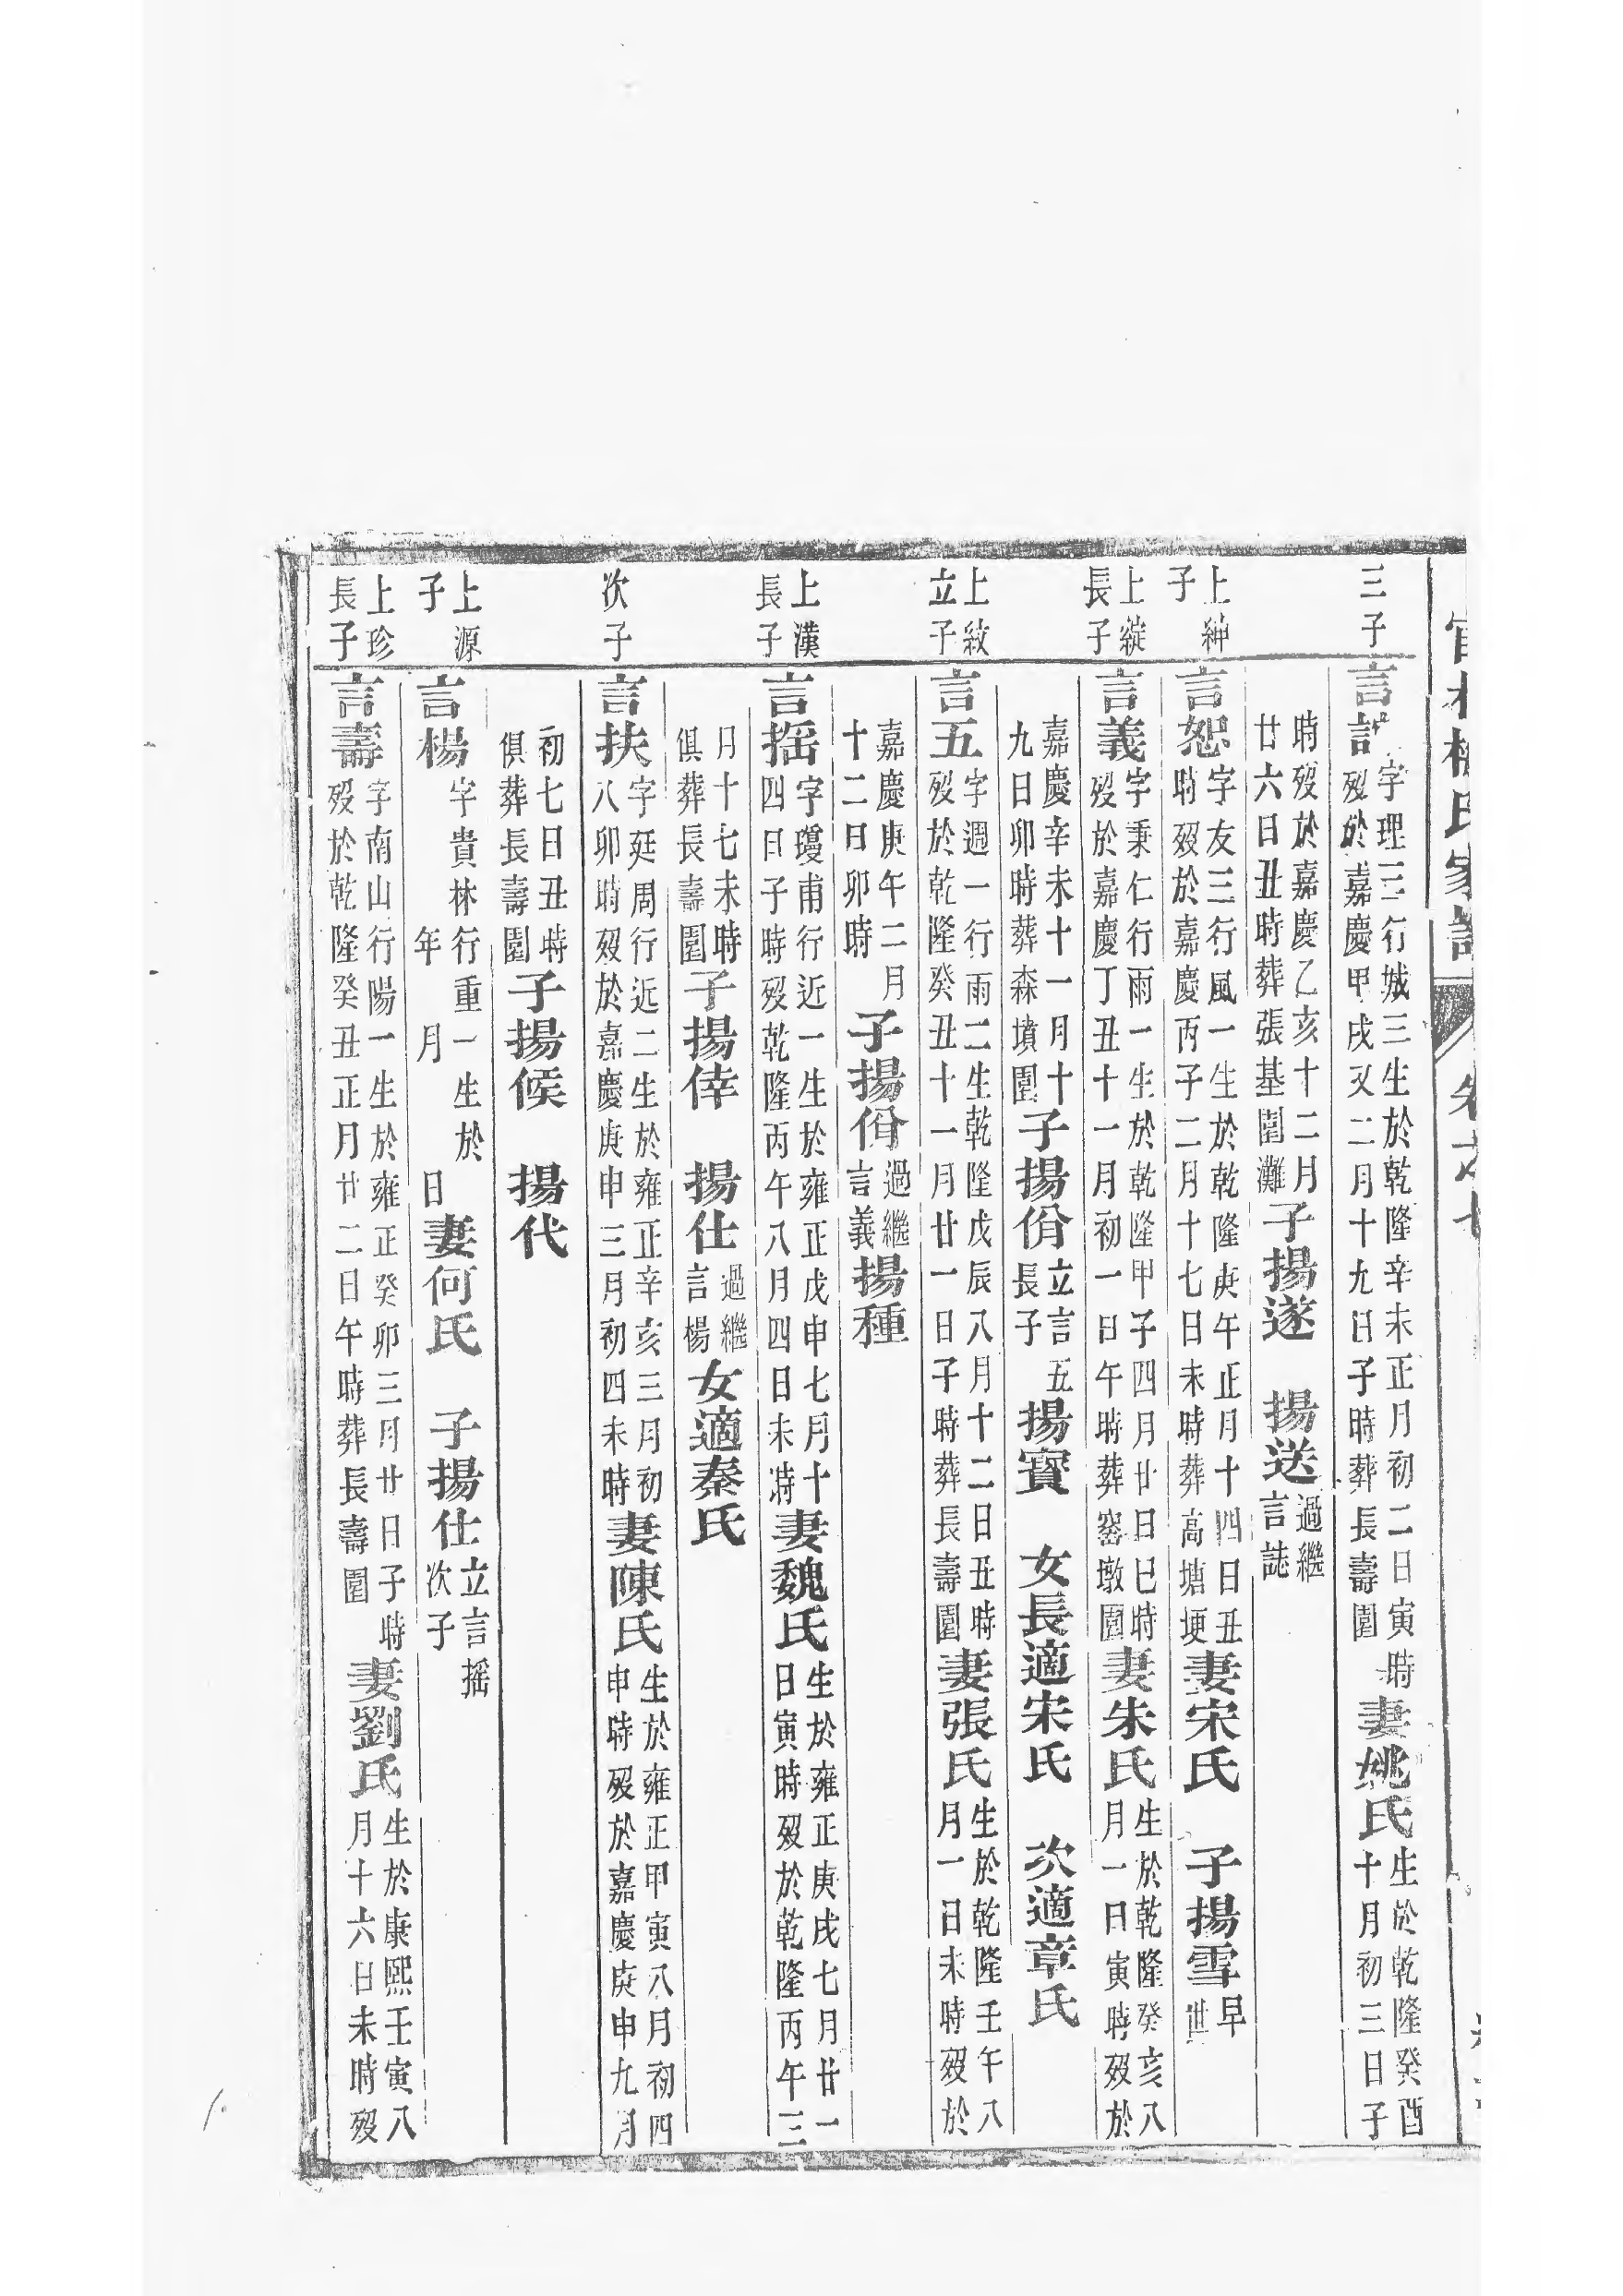 氏家
卷之七
三子
言
字理三行城三生於乾隆辛未正月初二日寅時
歿於嘉慶甲戌又二月十九日子時葬長壽圍
妻姚氏
生於乾隆癸酉
十月初三日子
時歿於嘉慶乙亥十二月
廿六日丑時葬張基圍灘
子揚遂　揚送
過繼
言誌
上紳
子
言恕
字友三行風一生於乾隆庚午正月十四日丑
時歿於嘉慶丙子二月十七日未時葬高塘埂
妻宋氏　子揚雪
早
世
上綻
長子
言義
字秉仁行雨一生於乾隆甲子四月廿日巳時
歿於嘉慶丁丑十一月初一日午時葬窰墩圍
妻朱氏
生於乾隆癸亥八
月一日寅時歿於
嘉慶辛未十一月十
九日卯時葬森墳圍
子揚佾
立言五
長子
揚寳　女長適宋氏　次適章氏
上紋
立子
言五
字週一行雨二生乾隆戊辰八月十二日丑時
歿於乾隆癸丑十一月廿一日子時葬長壽圍
妻張氏
生於乾隆壬午八
月一日未時歿於
嘉慶庚午二月
十二日卯時
子揚佾
過繼
言義
揚種
上漢
長子
言摇
字瓊甫行近一生於雍正戊申七月十
四日子時歿乾隆丙午八月四日未時
妻魏氏
生於雍正庚戌七月廿一
日寅時歿於乾隆丙午三
月十七未時
俱葬長壽圍
子揚倖　揚仕
過繼
言楊
女適秦氏
次子
言扶
字廷周行近二生於雍正辛亥三月初
八卯時歿於嘉慶庚申三月初四未時
妻陳氏
生於雍正甲寅八月初四
申時歿於嘉慶庚申九月
初七日丑時
俱葬長壽圍
子揚候　揚代
上源
子
言楊
字貴林行重一生於
年　月　日
妻何氏　子揚仕
立言摇
次子
上珍
長子
言壽
字南山行陽一生於雍正癸卯三月廿日子時
歿於乾隆癸丑正月廿二日午時葬長壽圍
妻劉氏
生於康熙壬寅八
月十六日未時歿